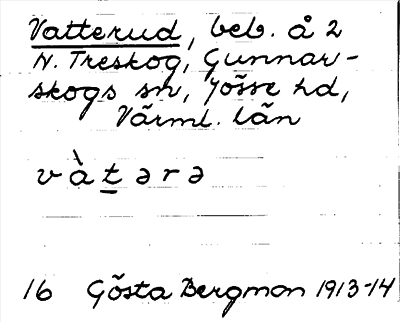 Vatterud, beb. å 2
N. Treskog, Gunnar-
skogs sn, Jösse hd,
Värml. län
và̀t̠ərə
16 Gösta Bergman 1913-14